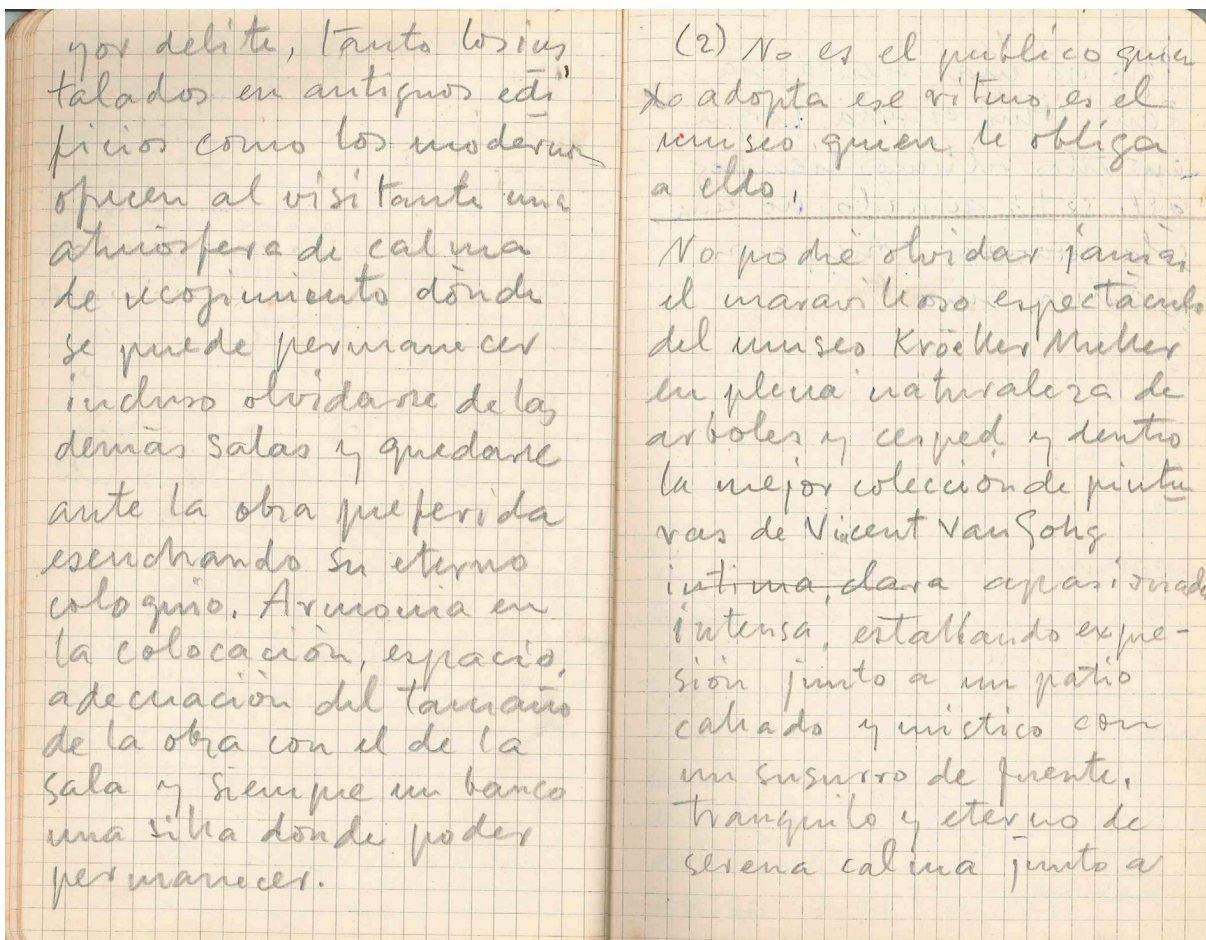 yor delite, tanto los ins
talados en antiguos edi
ficios como los modernos
ofrecen al visitante una
atmósfera de calma
de recogimiento donde
se puede permanecer
incluso olvidarse de las
demás salas y quedarse
ante la obra preferida
escuchando su eterno
coloquio. Armonia en
la colocación, espacio,
adecuación del tamaño
de la obra con el de la
sala y siempre un banco
una silla donde poder
permanecer.
(2) No es el publico quien
adopta ese ritmo, es el
museo quien le obliga
a ello.
No podré olvidar jamás
el maravilloso espectáculo
del museo Kröeller Muller
en plena naturaleza de
arboles y cesped y dentro
la mejor colección de pintu
ras de Vicent Van Gohg
intima, clara apasionada
intensa, estallando expre-
sión junto a un patio
callado y mistico con
un susurro de fuente.
tranquilo y eterno de
serena calma junto a